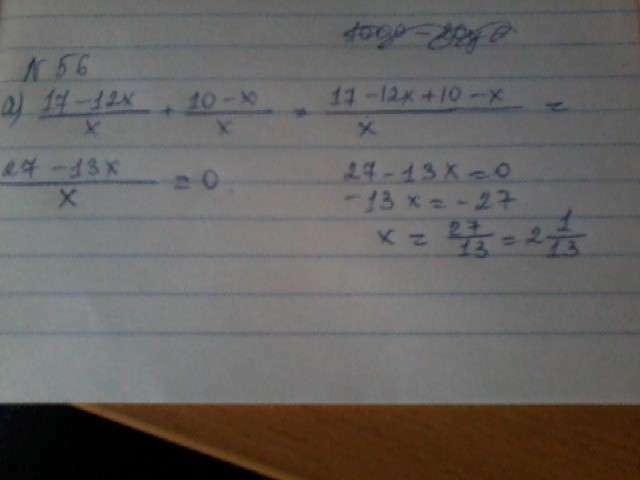 N 56
а) \frac{17-12x}{x} + \frac{10-x}{x} = \frac{17-12x+10-x}{x} =
\frac{27-13x}{x} = 0
27-13x=0
-13x=-27
x = \frac{27}{13} = 2\frac{1}{13}